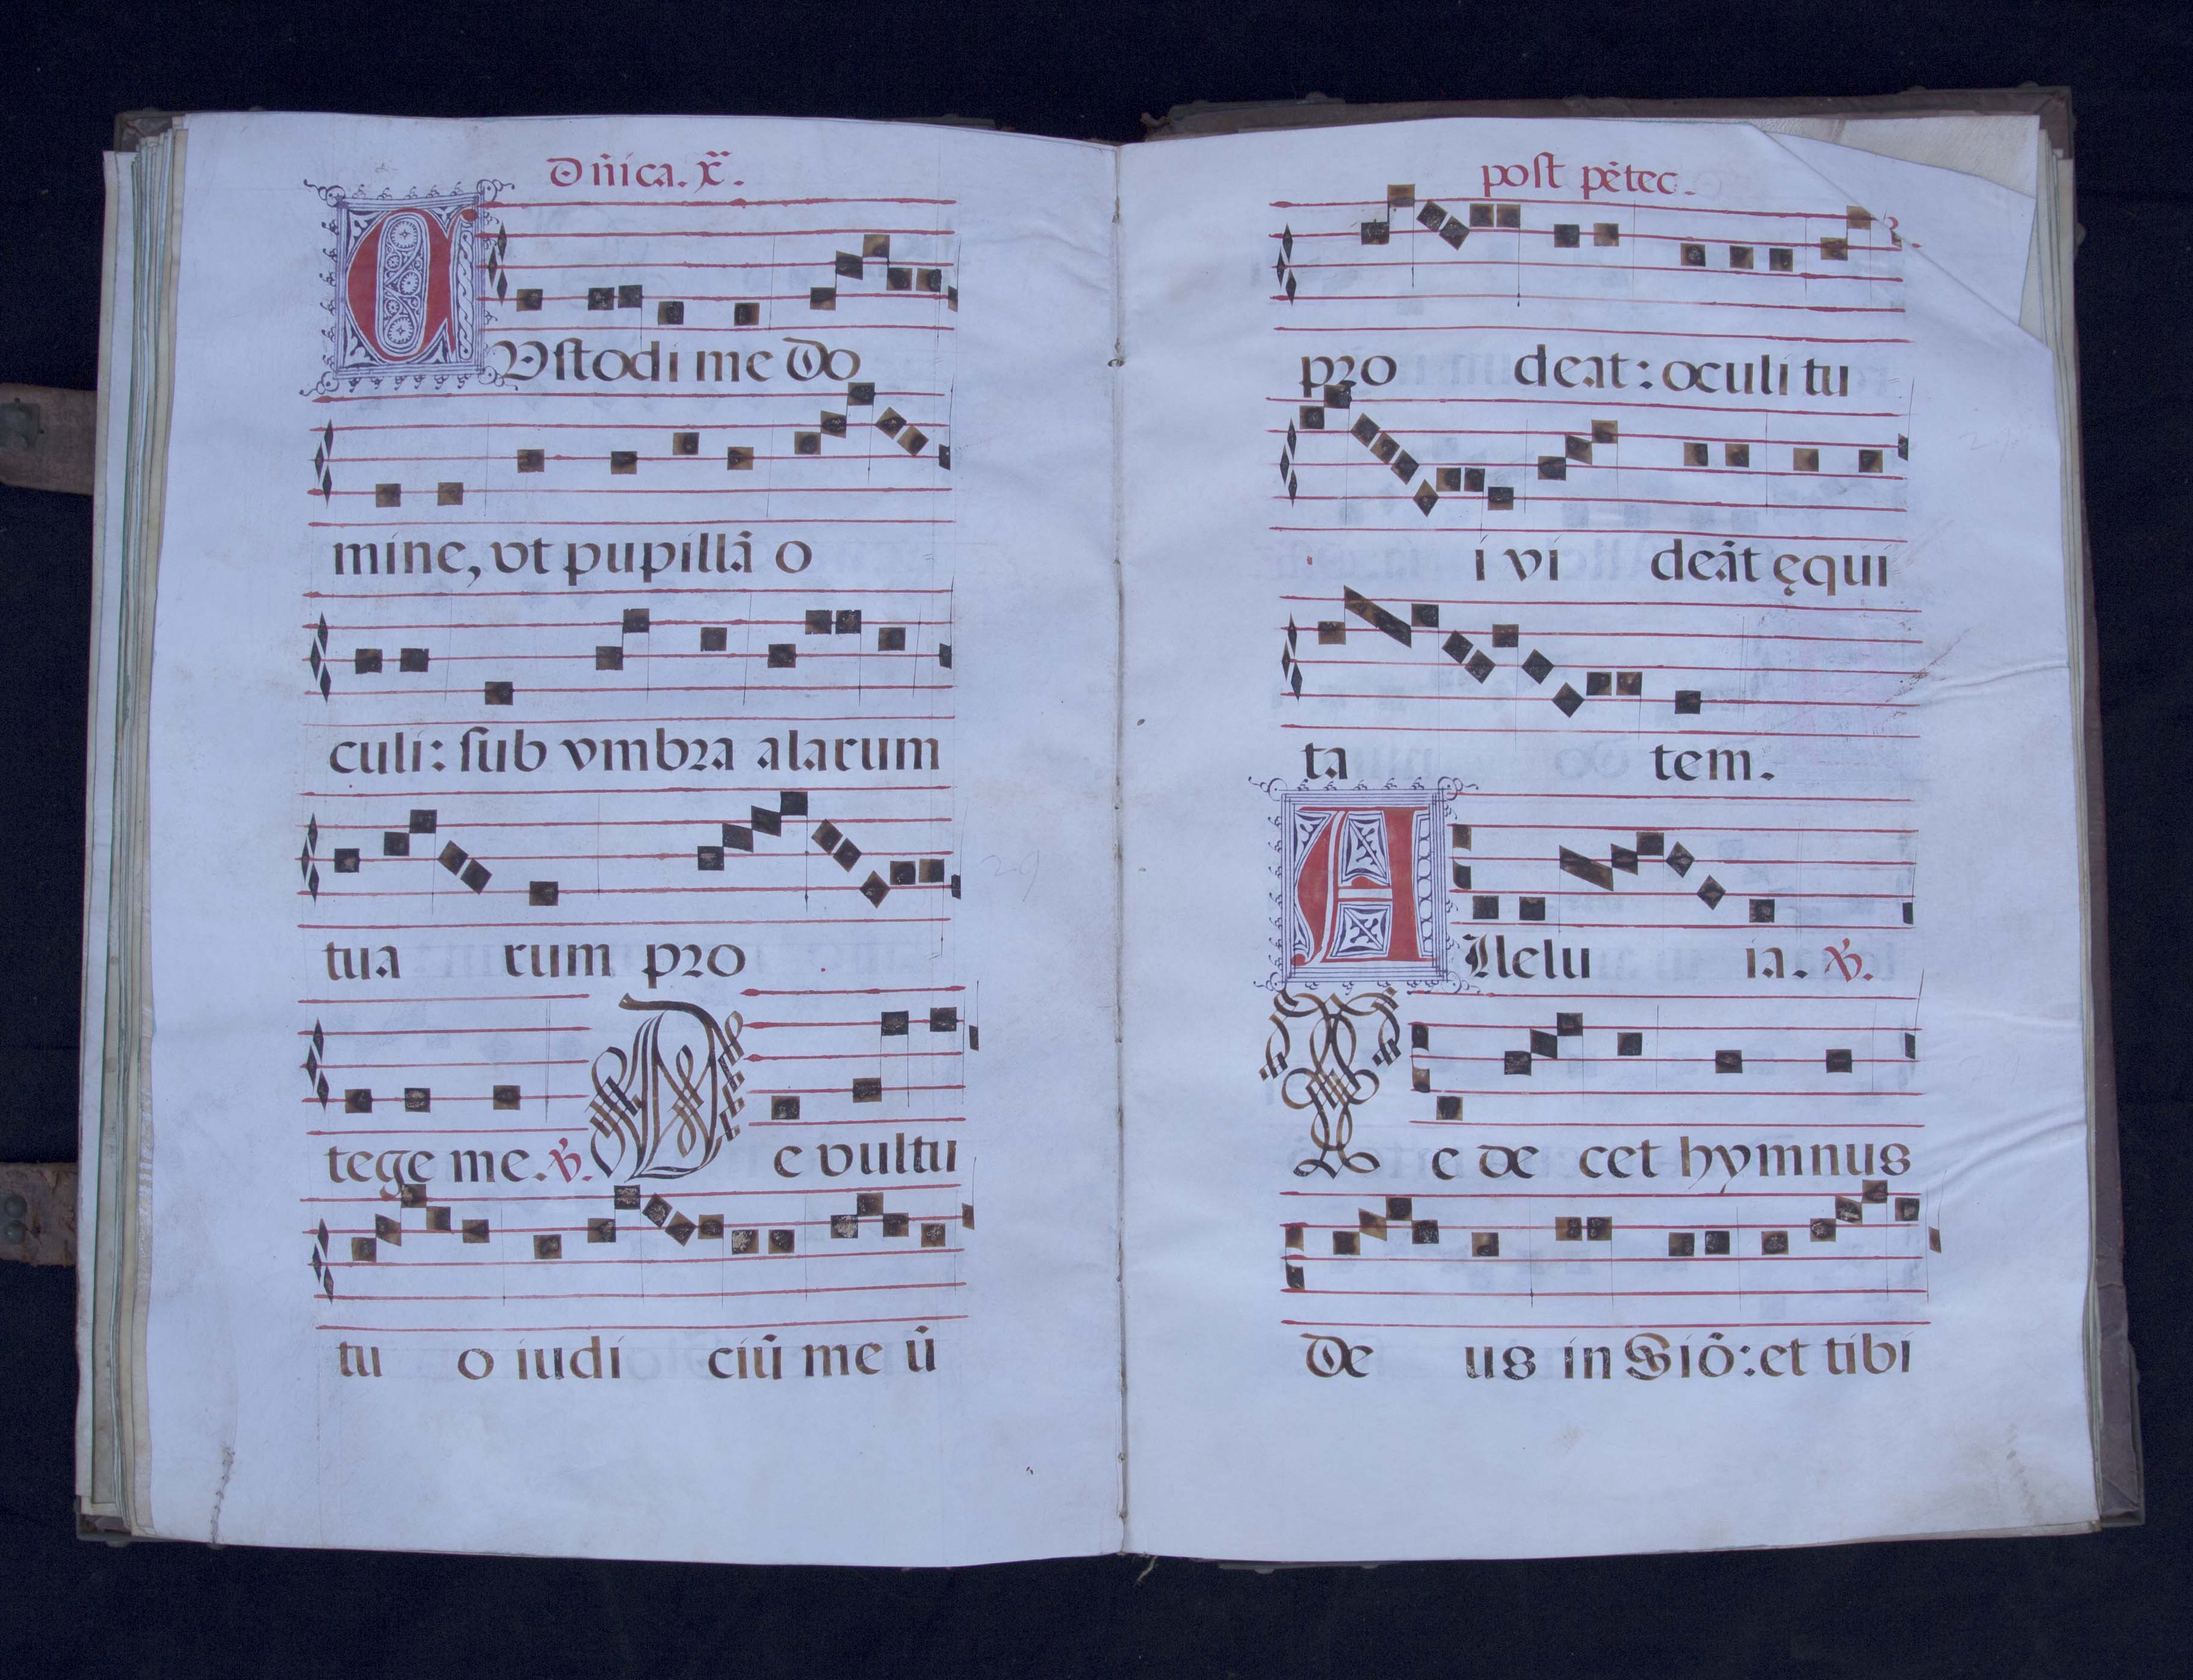 Dñica. x̃.
CVstodi me Do
mine, vt pupillã o
culi: sub vmbra alarum
tua rum pro
tege me. ℣. De vultu
tu o iudi ciũ me ũ
post pẽtec.
pro deat: oculi tu
i vi deãt ęqui
ta tem.
Allelu ia. ℣.
Te de cet hymnus
De us in Siõ: et tibi